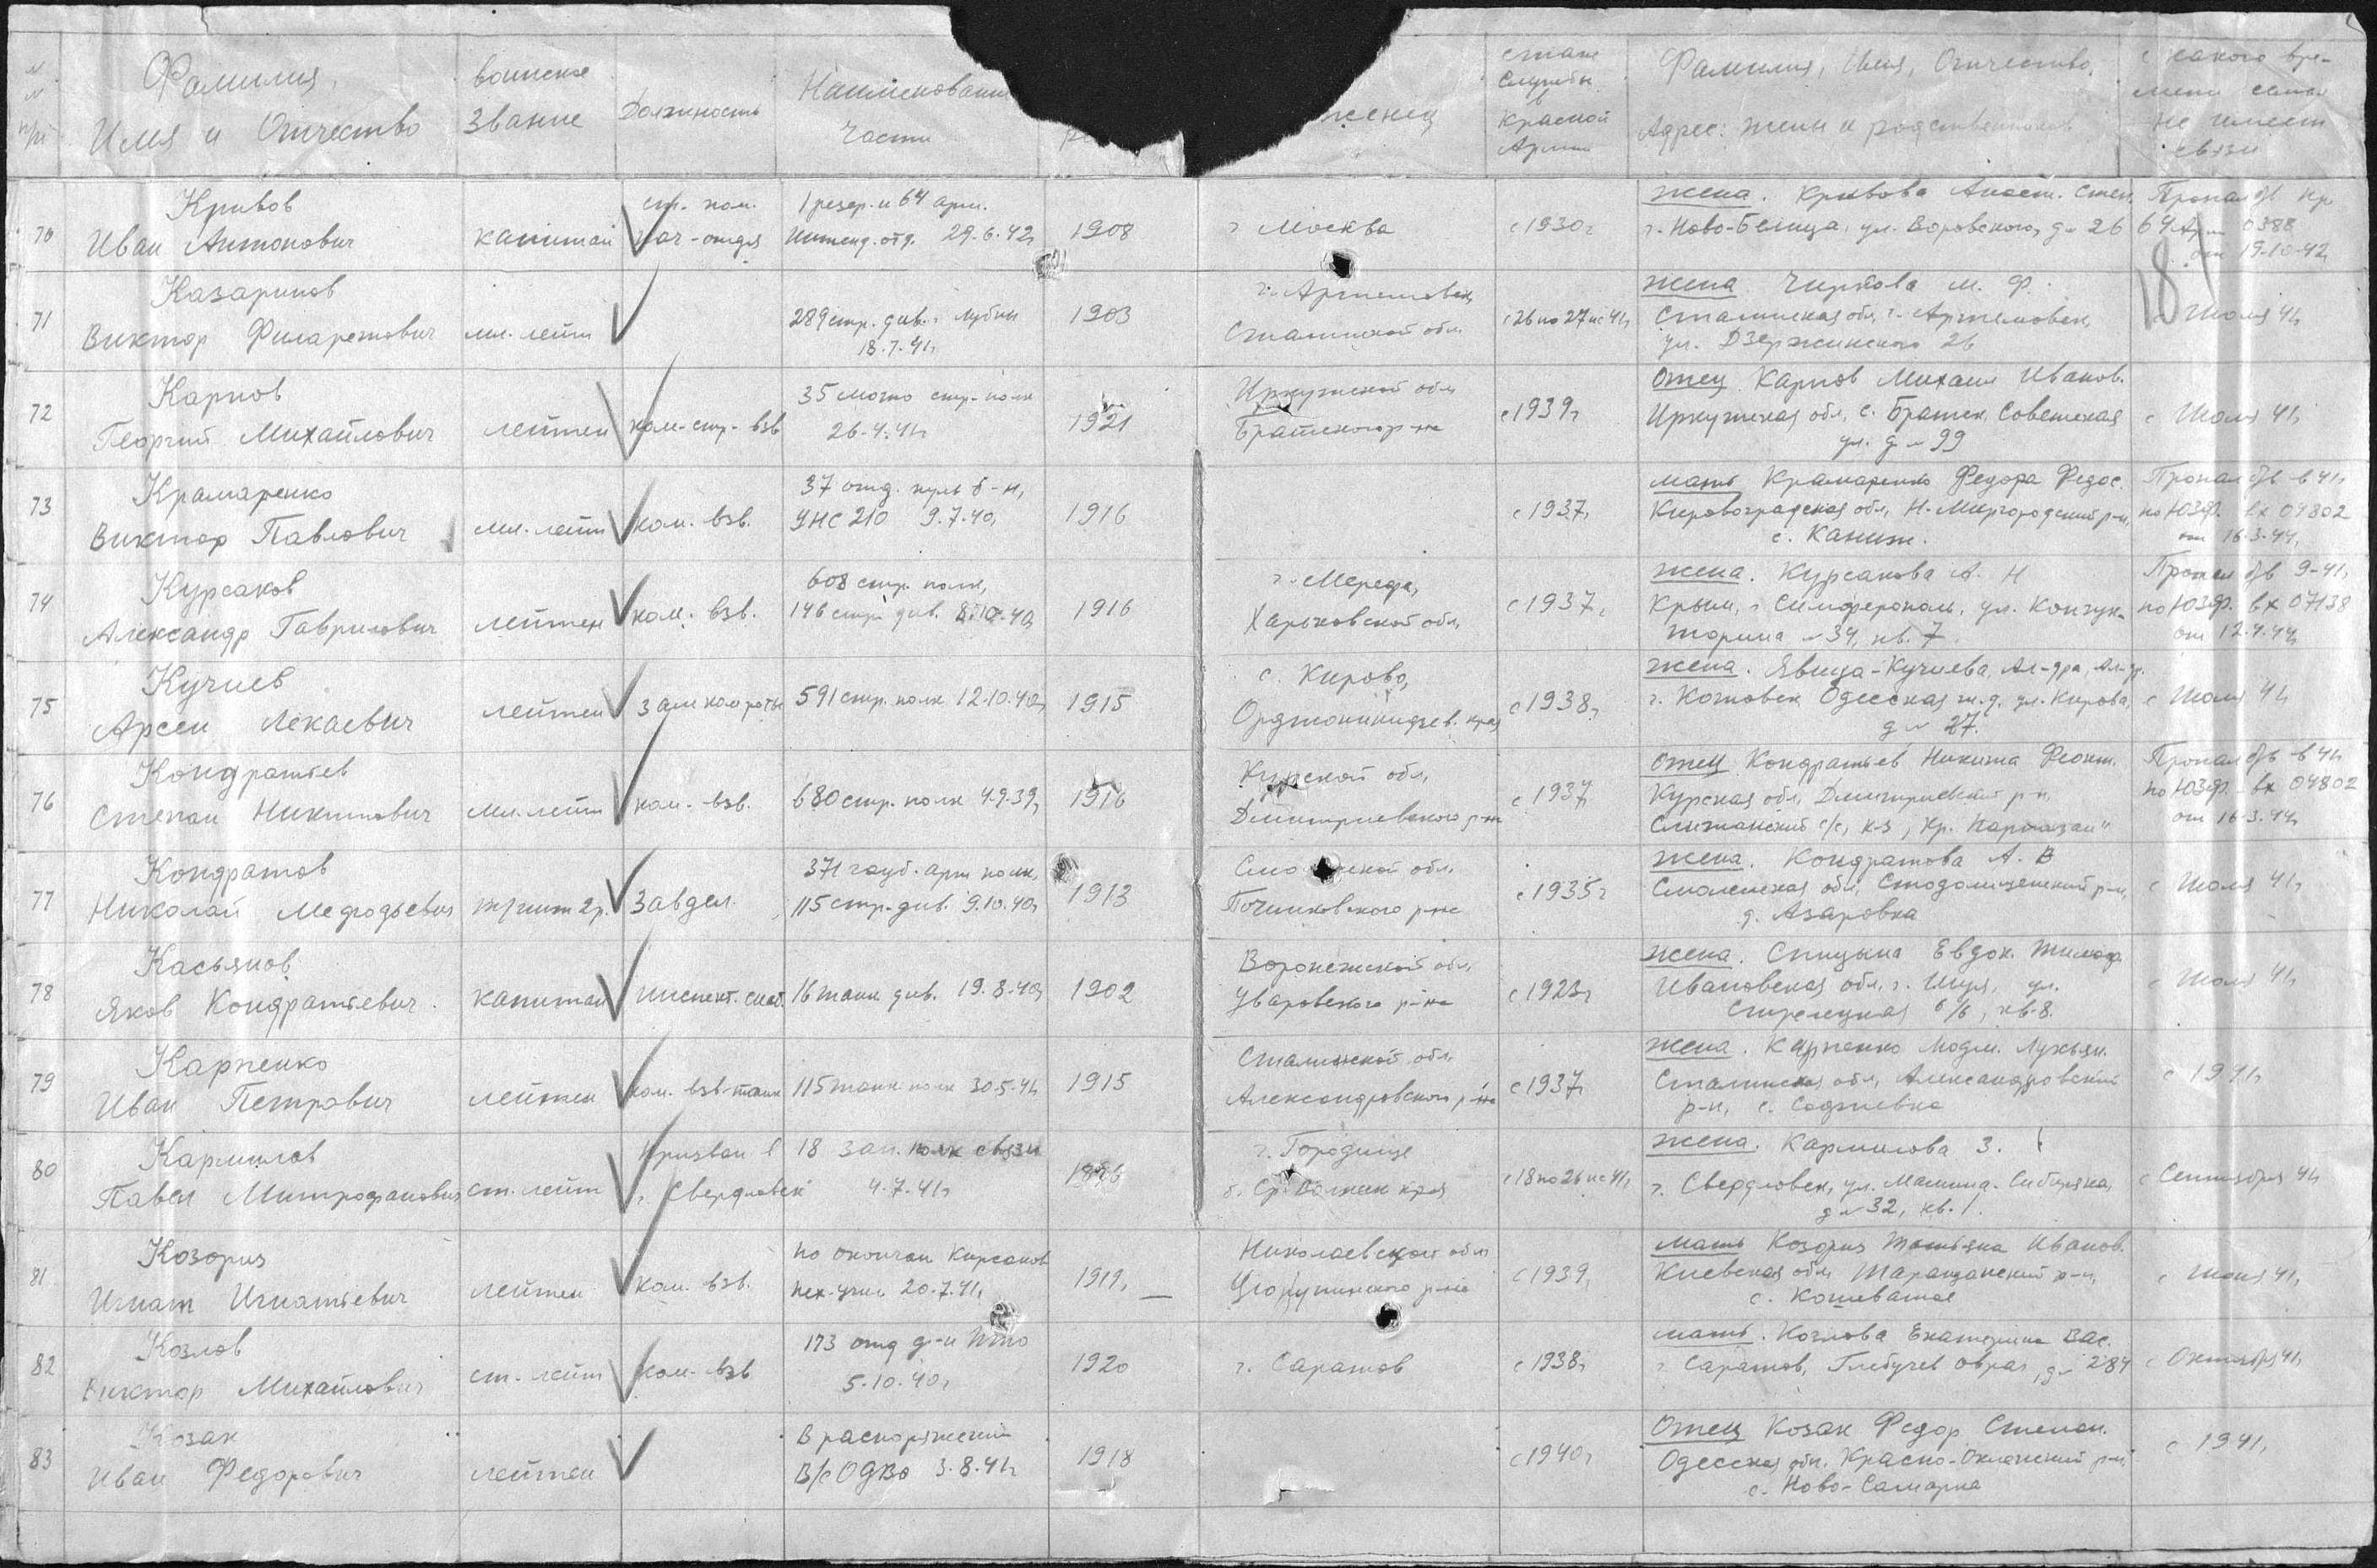 №№ п/п
Фамилия,
Имя и Отчество
воинское
звание
Должность
Наименовани
части
женец
стаж
службы
в
Красной
Армии
Фамилия, Имя, Отчество,
Адрес: жены и родственников
с какого вре-
мени семья
не имеет
связи
70
Кривов
Иван Антонович
капитан
ст. пом.
нач-отдел
1 резер. и 64 арм.
Интенд. отд. 29.6.42г
1908
г Москва
с1930г
жена. Кривова Анаст. Степ.
г. Ново-Белица, ул. Воровского, д № 26
Пропал б/в пр
64 Арм 0388
от 19-10-42г
71
Казаринов
Виктор Филаретович
мл. лейт
289 стр. див. г. Лубны
18.7.41г
1903
г. Артемовск,
Сталинской обл.
с26 по 27 и с 41г
жена М. Ф.
Сталинская обл, г. Артемовск,
ул. Дзержинского 26
с Июля 41г
72
Карпов
Георгий Михайлович
лейтен
ком-стр-взв
35 мото стр-полк
26.4.41г
1921
Иркутской обл
Братского р-на
с1939г
Отец Карпов Михаил Иванов.
Иркутская обл, с. Братск, Советская
ул. д № 99
с Июля 41г
73
Крамаренко
Виктор Павлович
мл. лейт
ком. взв.
37 отд. пуль б-н,
УНС 210 9.7.40г
1916
с1937г
мать Крамаренко Федора Федос.
Кировоградская обл, Н-Миргородский р-н,
с. Каниж.
Пропал б/в в 41г
по ЮЗФ. вх 04802
от 16.3.44г
74
Курсаков
Александр Гаврилович
лейтен
ком. взв.
608 стр. полк,
146 стр див. 8.10.40г
1916
г. Мерефа,
Харьковской обл,
с1937г
жена. Курсакова А. Н
Крым, г Симферополь, ул.
№ 34, кв. 7.
Пропал б/в 9-41г
по ЮЗФ. вх 07138
от 12.4.44г
75
Кучиев
Арсен Лекаевич
лейтен
зам ком роты
591 стр. полк 12.10.40г
1915
с. Кирово,
Орджоникидзев. края
с1938г
жена. Явица-Кучиева, Ал-дра, Ал-др.
г. Котовск Одесская ж.д. ул. Кирова,
д № 27.
с Июля 41г
76
Кондратьев
Степан Никитович
мл. лейт
ком. взв.
680 стр. полк 4.9.39г
1916
Курской обл,
Дмитриевского р-на
с 1937г
отец Кондратьев Никита Феокт.
Курская обл, Дмитриевский р-н,
с/с, к-з „Кр. Партизан"
Пропал б/в в 41г
по ЮЗФ. вх 04802
от 16.3.44г
77
Кондратов
Николай Мефодьевич
т/инт 2 р.
Завдел.
371 гауб. арт полк,
115 стр. див. 9.10.40г
1913
Смо ской обл.
Починковского р-на
с1935г
жена. Кондратова А. В
Смоленская обл, Стодолищенский р-н,
д. Азаровка
с Июля 41г
78
Касьянов
Яков Кондратьевич
капитан
инспект. снаб.
16 танк див. 19.8.40г
1902
Воронежской обл,
Уваровского р-на
с1923г
жена. Спицына Евдок. Тимоф.
Ивановская обл, г. Шуя, ул.
Стрелецкая 6/6, кв-8.
с Июля 41г
79
Карпенко
Иван Петрович
лейтен
ком. взв-танк
115 танк полк 30.5.41г
1915
Сталинской обл.
Александровского р-на
с1937г
жена. Карпенко Лукьян.
Сталинская обл, Александровский
р-н, с.
с 1941г
80
Кармилов
Павел Митрофанович
ст. лейт
Призван в
г. Свердловск
18 зап. полк связи
4.7.41г
г. Городище
б. Ср. Волжск края
с18 по 26 и с 41г
жена. Кармилова З.
г. Свердловск, ул. Мамина-Сибиряка,
д № 32, кв. 1.
с Сентября 41г
81
Козориз
Игнат Игнатьевич
лейтен
ком. взв.
по окончан Кирсанов
пех. учил 20.7.41г
1919г
Николаевской обл
Цюрупинского р-на
с1939г
мать Козориз Татьяна Иванов.
Киевская обл Таращанский р-н,
с. Кошеватое
с Июня 41г
82
Козлов
Виктор Михайлович
ст. лейт
ком. взв
173 отд д-н ПТО
5.10.40г
1920
г. Саратов
с1938г
мать. Козлова Екатерина Вас.
г. Саратов, Глебучев овраг, д № 284
с Октября 41г
83
Козак
Иван Федорович
лейтен
В распоряжении
В/с ОДВО 3.8.41г
1918
с1940г
Отец Козак Федор Степан.
Одесская обл. Красно-Окнянский р-н
с. Ново-Самарка
с 1941г